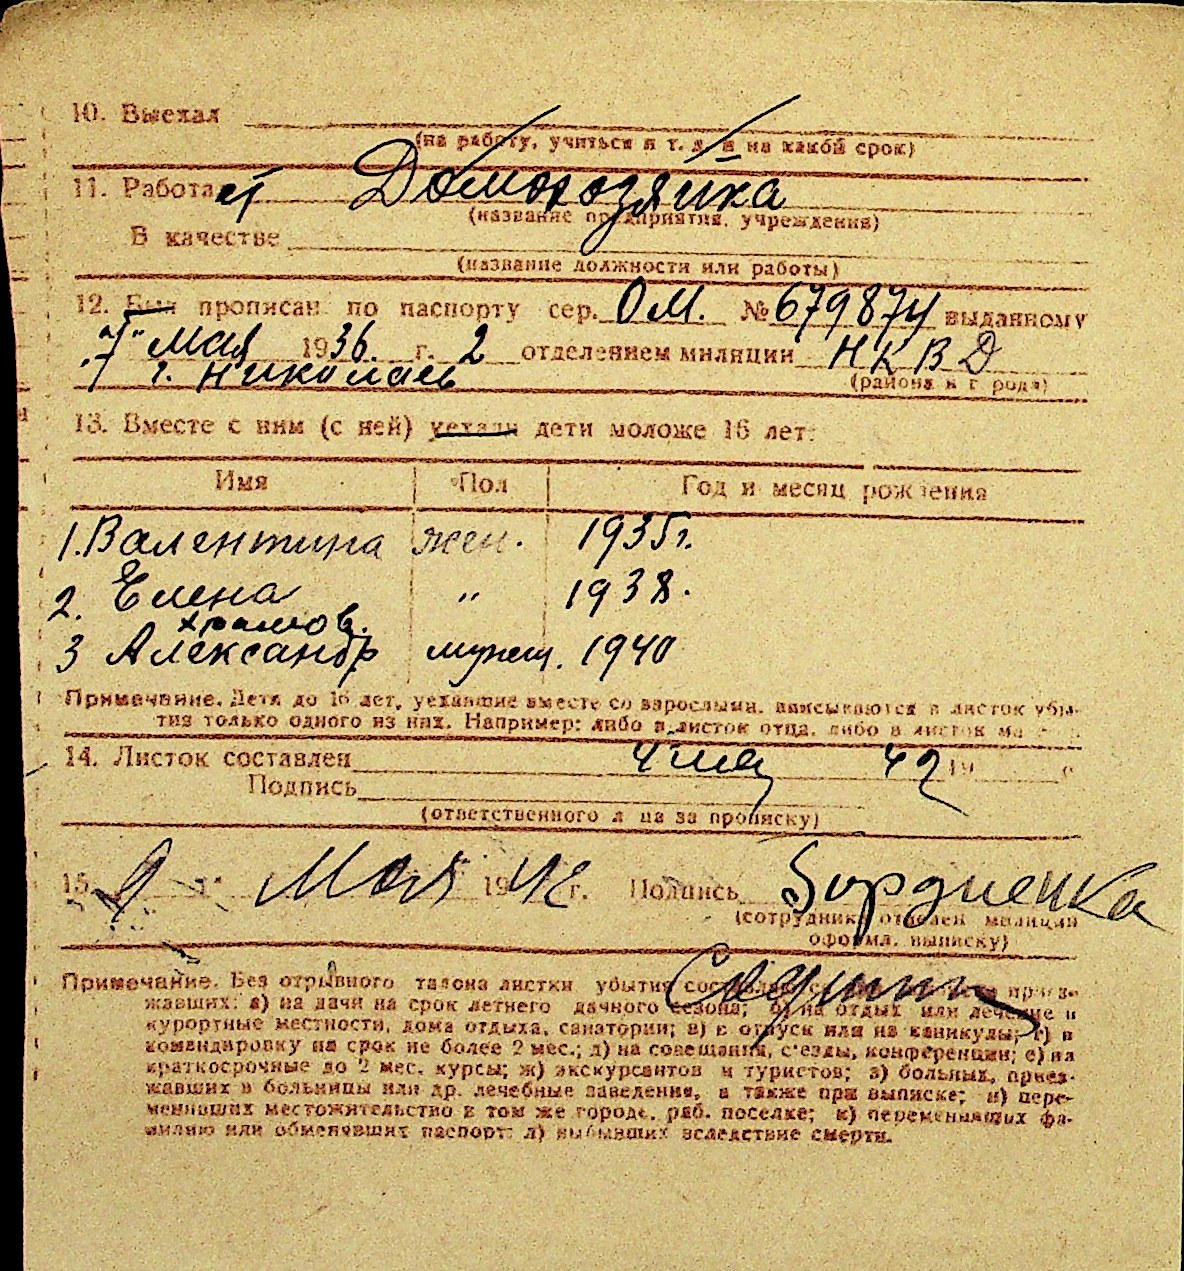 10. Выехал
(на работу, учиться и т. д. и на какой срок)
11. Работает Домохозяйка
(название предприятия, учреждения)
В качестве
(название должности или работы)
12. Был прописан по паспорту сер. ОМ. № 679874 выданному
"7" мая 1936. г. 2 отделением милиции НКВД
г. Николаев (района и города)
13. Вместе с ним (с ней) уехали дети моложе 16 лет:
Имя Пол Год и месяц рождения
1. Валентина жен. 1935 г.
2. Елена " 1938.
храмов.
3 Александр мужш. 1940
Примечание. Дети до 16 лет, уехавшие вместе со взрослыми, вписываются в листок убы-
тия только одного из них. Например: либо в листок отца, либо в листок
14. Листок составлен 4 мая 42 19 г
Подпись
(ответственного лица за прописку)
15. мая 1942 г. Подпись
(сотрудника отделен милиции
оформл. выписку)
Примечание. Без отрывного талона листки убытия приез-
жавших: а) на дачи на срок летнего дачного сезона; б) на отдых или лечение в
курортные местности, дома отдыха, санатории; в) в отпуск или на каникулы; г) в
командировку на срок не более 2 мес.; д) на совещания, с'езды, конференции; е) на
краткосрочные до 2 мес. курсы; ж) экскурсантов и туристов; з) больных, приез-
жавших в больницы или др. лечебные заведения, а также при выписке; и) пере-
менивших местожительство в том же городе, раб. поселке; к) переменивших фа-
милию или обменявших паспорт; л) выбывших вследствие смерти.